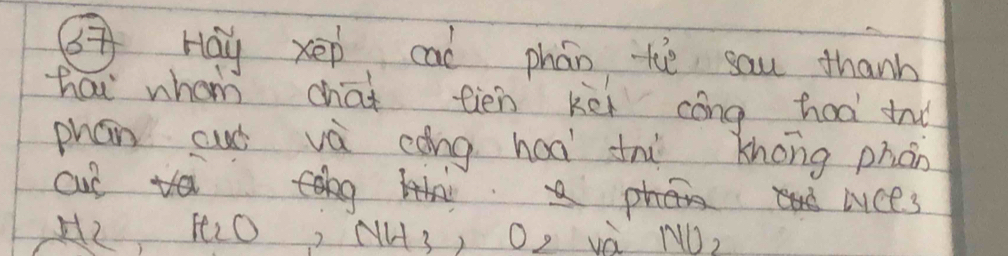 37 Hãy xếp các phân tử sau thành
hai nhóm chất liên kết cộng hoá trị
phân cực và cộng hoá trị không phân
cực và cộng phân NCl3
H2, H2O, NH3, O2 và NO2